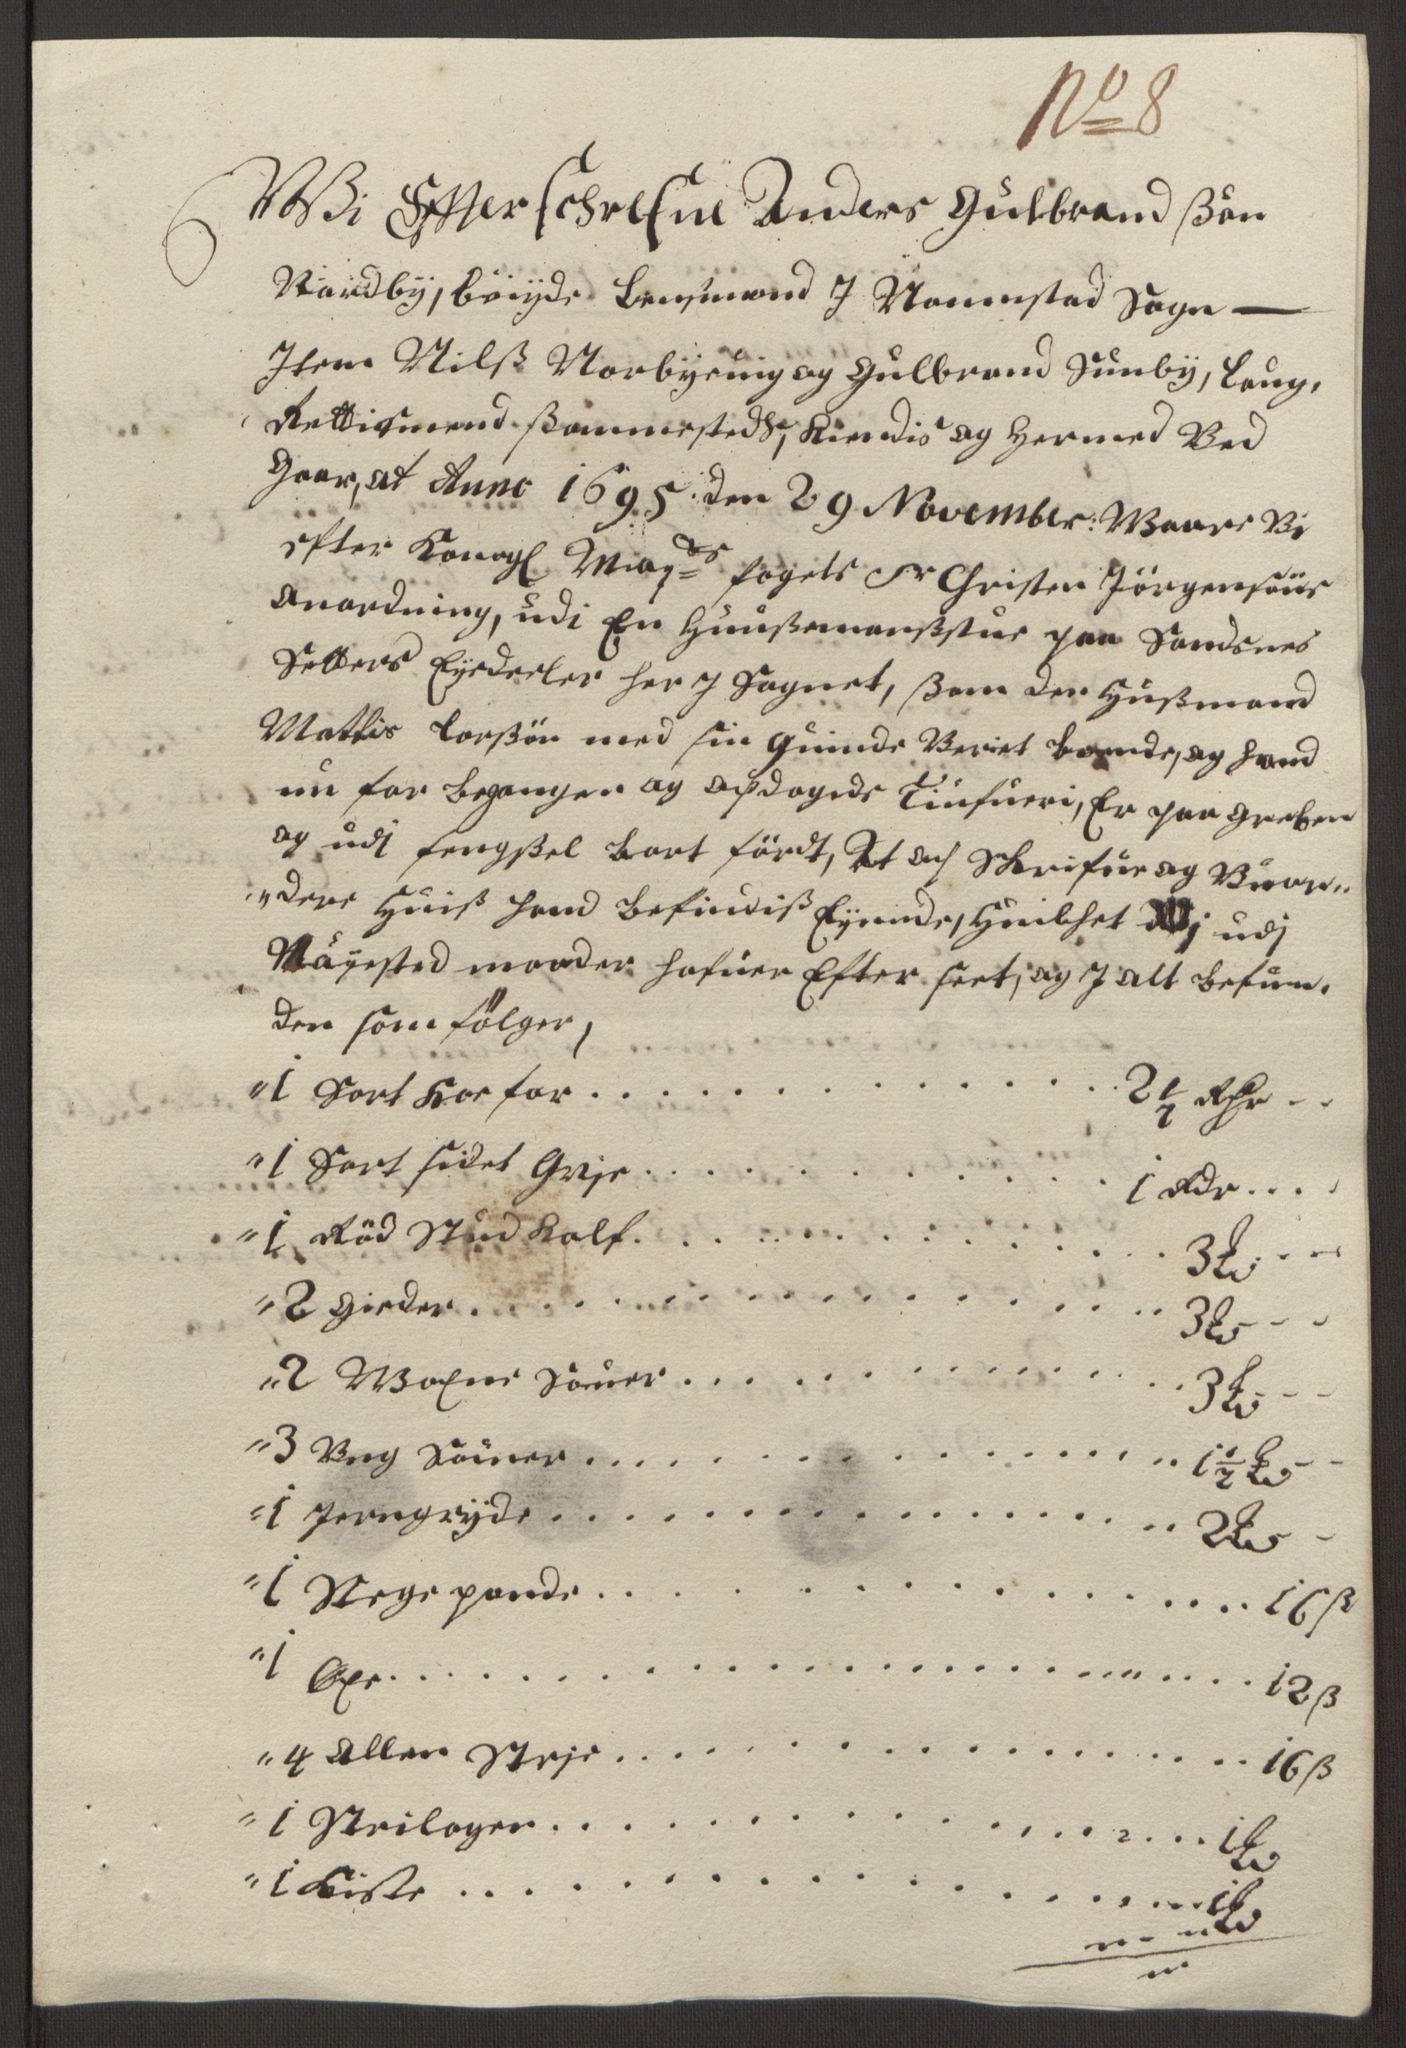 No 8
Wi Effterschrefne Anders Gulbrandßön
Nordby, böijde Lensmand J Nannestad Sogn —
Jtem Nilß Norbyeuig og Gulbrand Sunby, Laug,
Rettismend ßammesteds, Kiendis og hermed Ved
Gaar, at Anno 1695 den 29 November: Waare Vi
efter Kongl May:ds fogets Sr Christen Jörgensöns
anordning, udi En Huußemanßstue paa Sandsnes
Setters Eyedeeler her J Sognet, ßom den Hußmand
Mattis Larßön med sin quinde Beriet boende, og hand
nu for begangen og opdagede Tiufueri, Er paa greben
og udj fengßel bort fördt, At Schrifue og Vuor„
„dere Huiß hand befindiß Eyende, Huilchet Wj udj
Nayested maader hafuer Efter seet, og J alt befun,
den som fölger,
„1 Sort Koe for . . . . 2 1/2 Rdr
„1 Sort sidet Qvie . . . . 1 Rdr
„1 Röd Stud Kalf . . . . 3
„2 Gieder . . . . 3
„2 Woxne Souer . . . . 3
„3 Vng Souer . . . . 1 1/2
„1 Jerngryde . . . . 2
„1 Stege pande . . . . 16 ß
„1 Öxe . . . . 12 ß
„4 Allen Strie . . . . 16 ß
„1 Strilagen . . . . 1
„1 Kiste . . . . 1